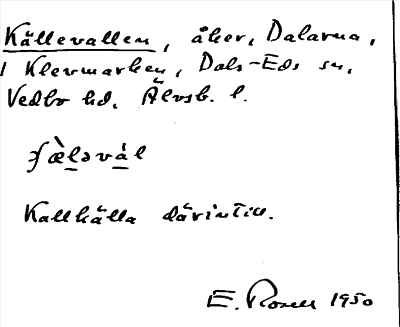 Källevallen, åker, Dalarna,
i Klevmarken, Dals-Eds sn,
Vedbo hd, Älvsb. l.
Kallkälla därintill.
E. Rosell 1950